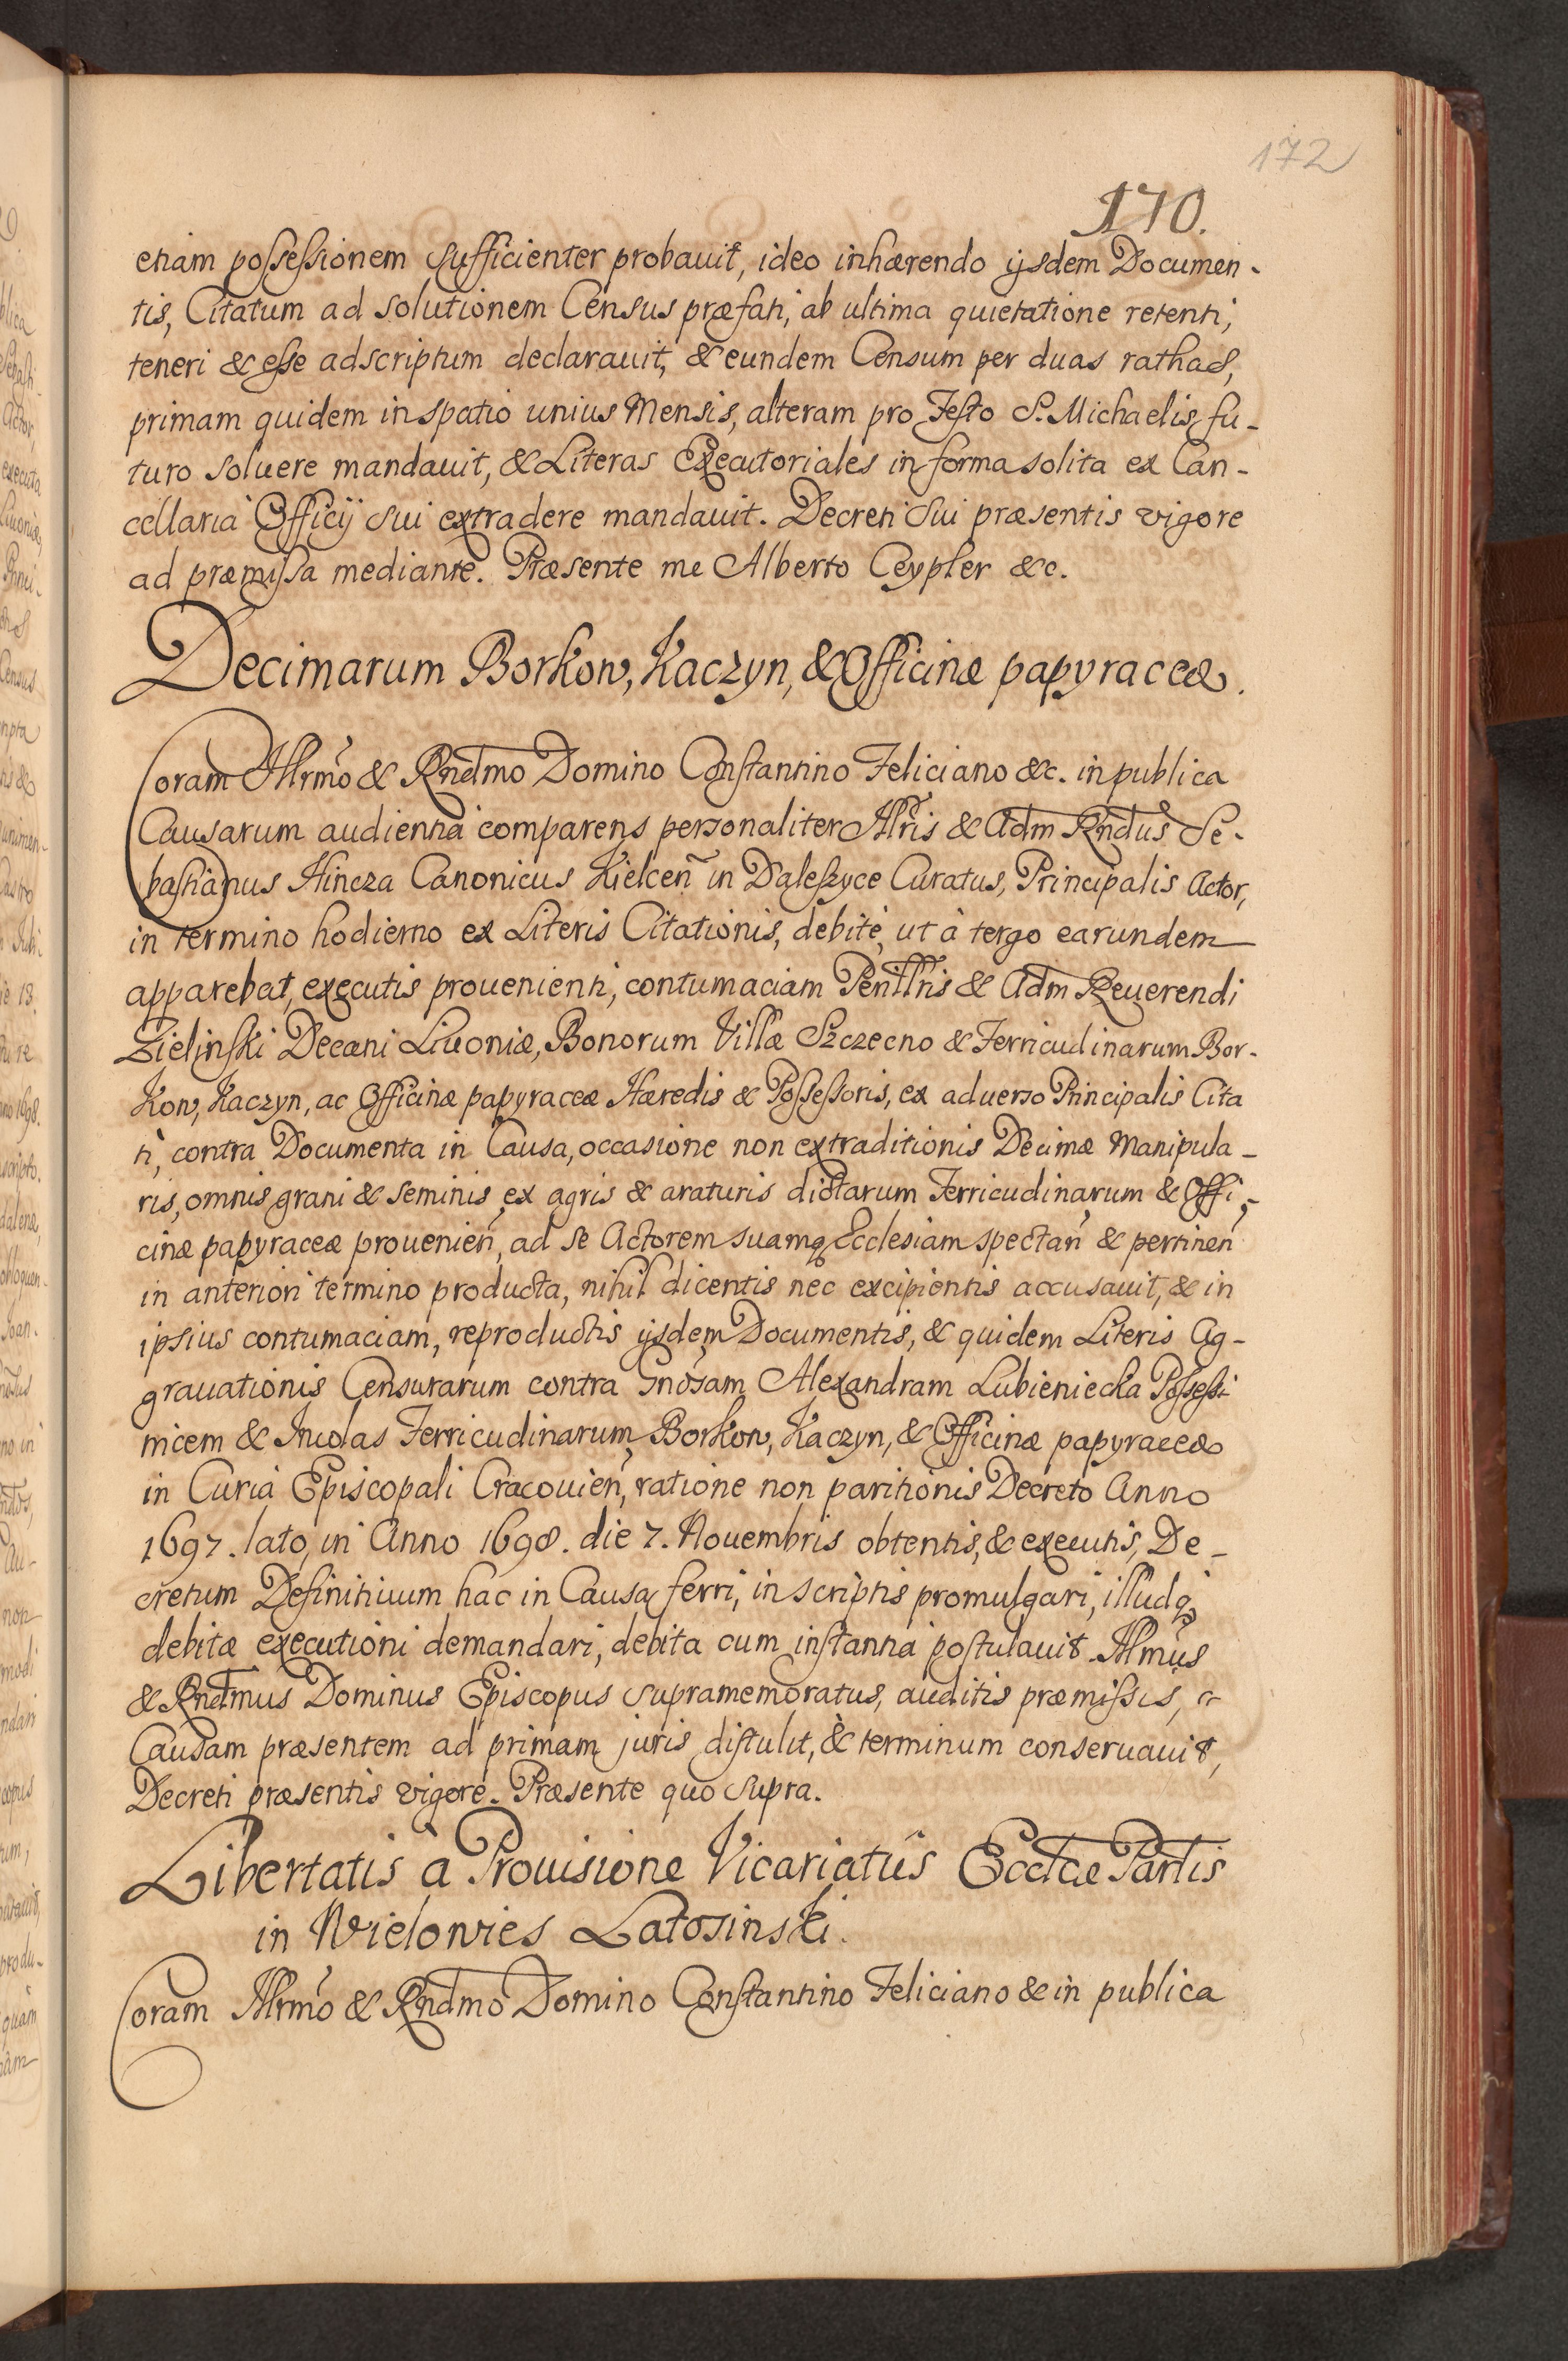 172
170.
etiam possessionem sufficienter probauit, ideo inhærendo ijsdem Documen-
tis, Citatum ad solutionem Census præfati, ab ultima quietatione retenti,
teneri & esse adscriptum declarauit, & eundem Censum per duas rathas,
primam quidem in spatio unius Mensis, alteram pro Festo S. Michaelis fu-
turo soluere mandauit, & Literas Executoriales in forma solita ex Can-
cellaria Officij sui extradere mandauit. Decreti sui præsentis vigore
ad præmissa mediante. Præsente me Alberto Ceypler &c.
Decimarum Borkow, Kaczyn, & Officinæ papyraceæ.
Coram Illrmo & Rndmo Domino Constantino Feliciano &c. in publica
Causarum audientia comparens personaliter Illris & Adm Rndus Se-
bastianus Hincza Canonicus Kielceñ in Daleszyce Curatus, Principalis Actor,
in termino hodierno ex Literis Citationis, debitè, ut à tergo earundem
apparebat, executis prouenienti, contumaciam Perillris & Adm Reuerendi
Zielinski Decani Liuoniæ, Bonorum Villæ Szczecno & Ferricudinarum Bor-
kow, Kaczyn, ac Officinæ papyraceæ Hæredis & Possessoris, ex aduerso Principalis Cita
ti, contra Documenta in Causa, occasione non extraditionis Decimæ Manipula-
ris, omnis grani & seminis, ex agris & araturis dictarum Ferricudinarum & Offi-
cinæ papyraceæ prouenieñ, ad se Actorem suamq Ecclesiam spectañ & pertineñ
in anteriori termino producta, nihil dicentis nec excipientis accusauit, & in
ipsius contumaciam, reproductis ijsdem Documentis, & quidem Literis Ag-
grauationis Censurarum contra Gnosam Alexandram Lubieniecka Possessi
tricem & Incolas Ferricudinarum Borkow, Kaczyn, & Officinæ papyraceæ
in Curia Episcopali Cracouieñ, ratione non paritionis Decreto Anno
1697. lato, in Anno 1698. die 7. Nouembris obtentis, & executis, De-
cretum Definitiuum hac in Causa ferri, in scriptis promulgari, illudq
debitæ executioni demandari, debita cum instantia postulauit. Illmus
& Rndmus Dominus Episcopus supramemoratus, auditis præmissis,
Causam præsentem ad primam juris distulit, & terminum conseruauit,
Decreti præsentis vigore. Præsente quo supra.
Libertatis à Prouisione Vicariatûs Ecctæ Partis
in Wielowies Latosinski.
Coram Illrmo & Rndmo Domino Constantino Feliciano & in publica